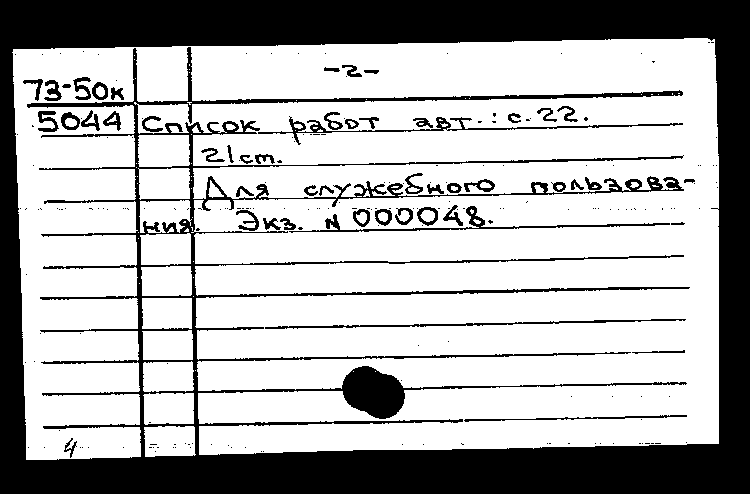 -2-
73-50к
5044 Список работ авт.: с.22.
21 cm.
Для служебного пользова-
ния. Экз. N 000048.
4